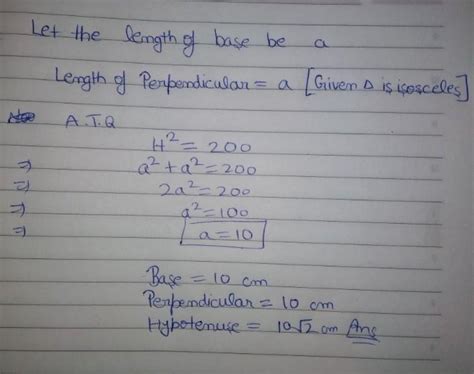 Let the length of base be a
Length of Perpendicular = a [Given Δ is isosceles]
A.T.Q
H² = 200
⇒ a² + a² = 200
⇒ 2a² = 200
⇒ a² = 100
⇒ a = 10
Base = 10 cm
Perpendicular = 10 cm
Hypotenuse = 10√2 cm Ans